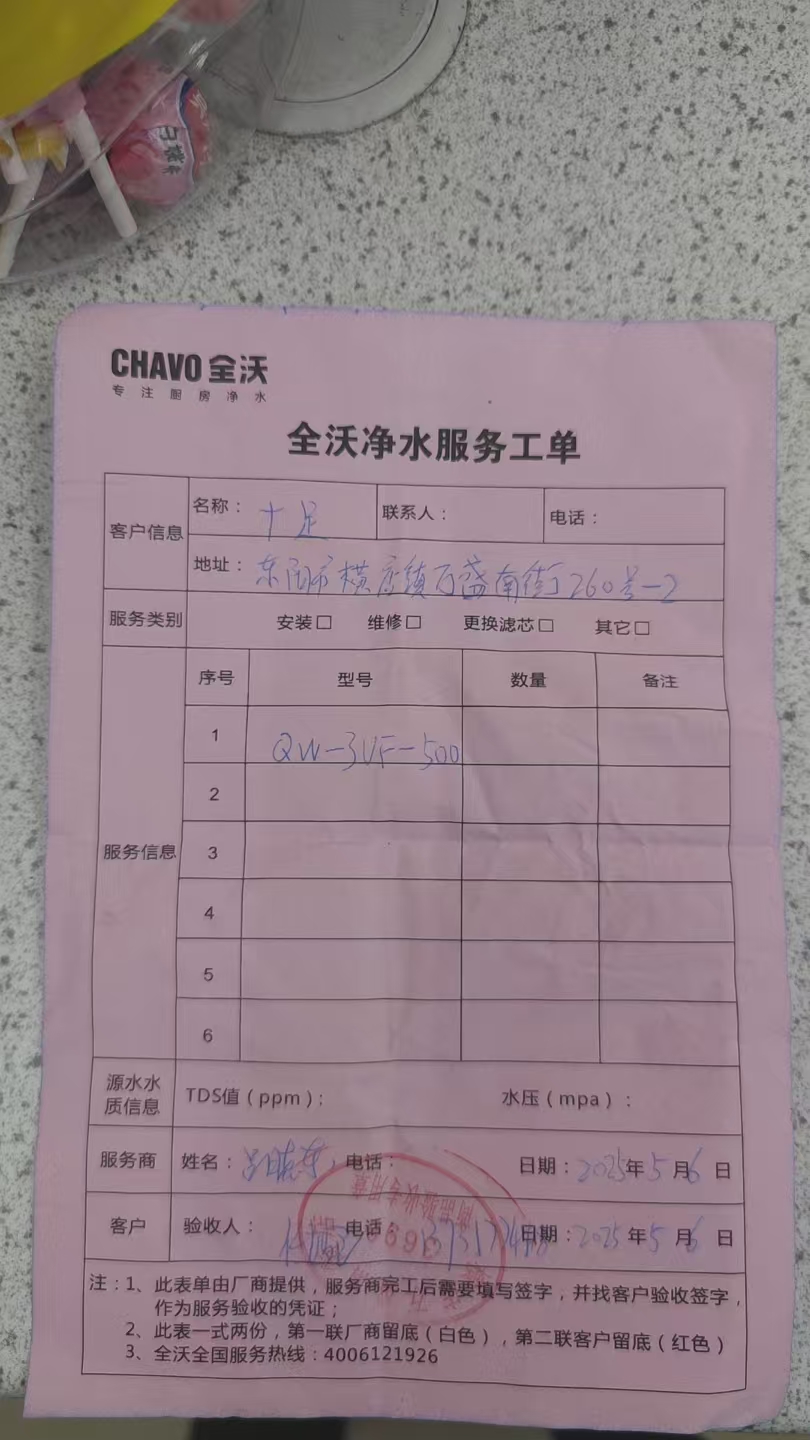 CHAVO 全沃
专注厨房净水
全沃净水服务工单
客户信息 名称：十足 联系人： 电话：
地址：东阳市横店镇万盛南街260号-2
服务类别 安装□ 维修□ 更换滤芯□ 其它□
服务信息 序号 型号 数量 备注
1 QW-3UF-500
2
3
4
5
6
源水水质信息 TDS值（ppm）： 水压（mpa）：
服务商 姓名：吕晓东 电话： 日期：2025年5月6日
客户 验收人： 电话： 日期：2025年5月6日
商品验收专用章
注：1、此表单由厂商提供，服务商完工后需要填写签字，并找客户验收签字，
作为服务验收的凭证；
2、此表一式两份，第一联厂商留底（白色），第二联客户留底（红色）
3、全沃全国服务热线：4006121926